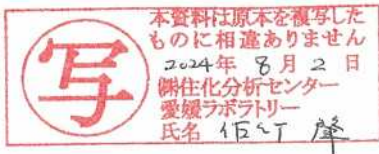 写
本資料は原本を複写した
ものに相違ありません
2024年 8月 2日
㈱住化分析センター
愛媛ラボラトリー
氏名